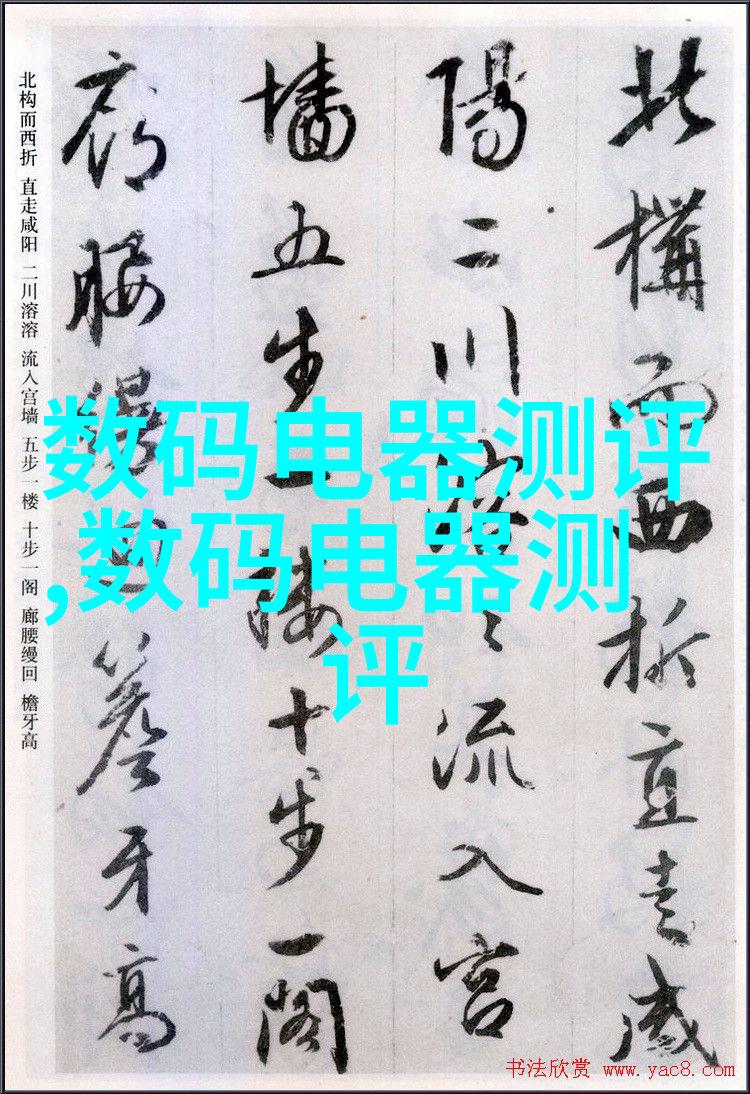 北構而西折直走咸
陽二川溶々流入宮
墻五步一樓十步一閣
廊腰縵回簷牙高
北构而西折 直走咸阳 二川溶溶 流入宫墙 五步一楼 十步一阁 廊腰缦回 檐牙高
数码电器测评
,数码电器测
评
书法欣赏 www.yac8.com